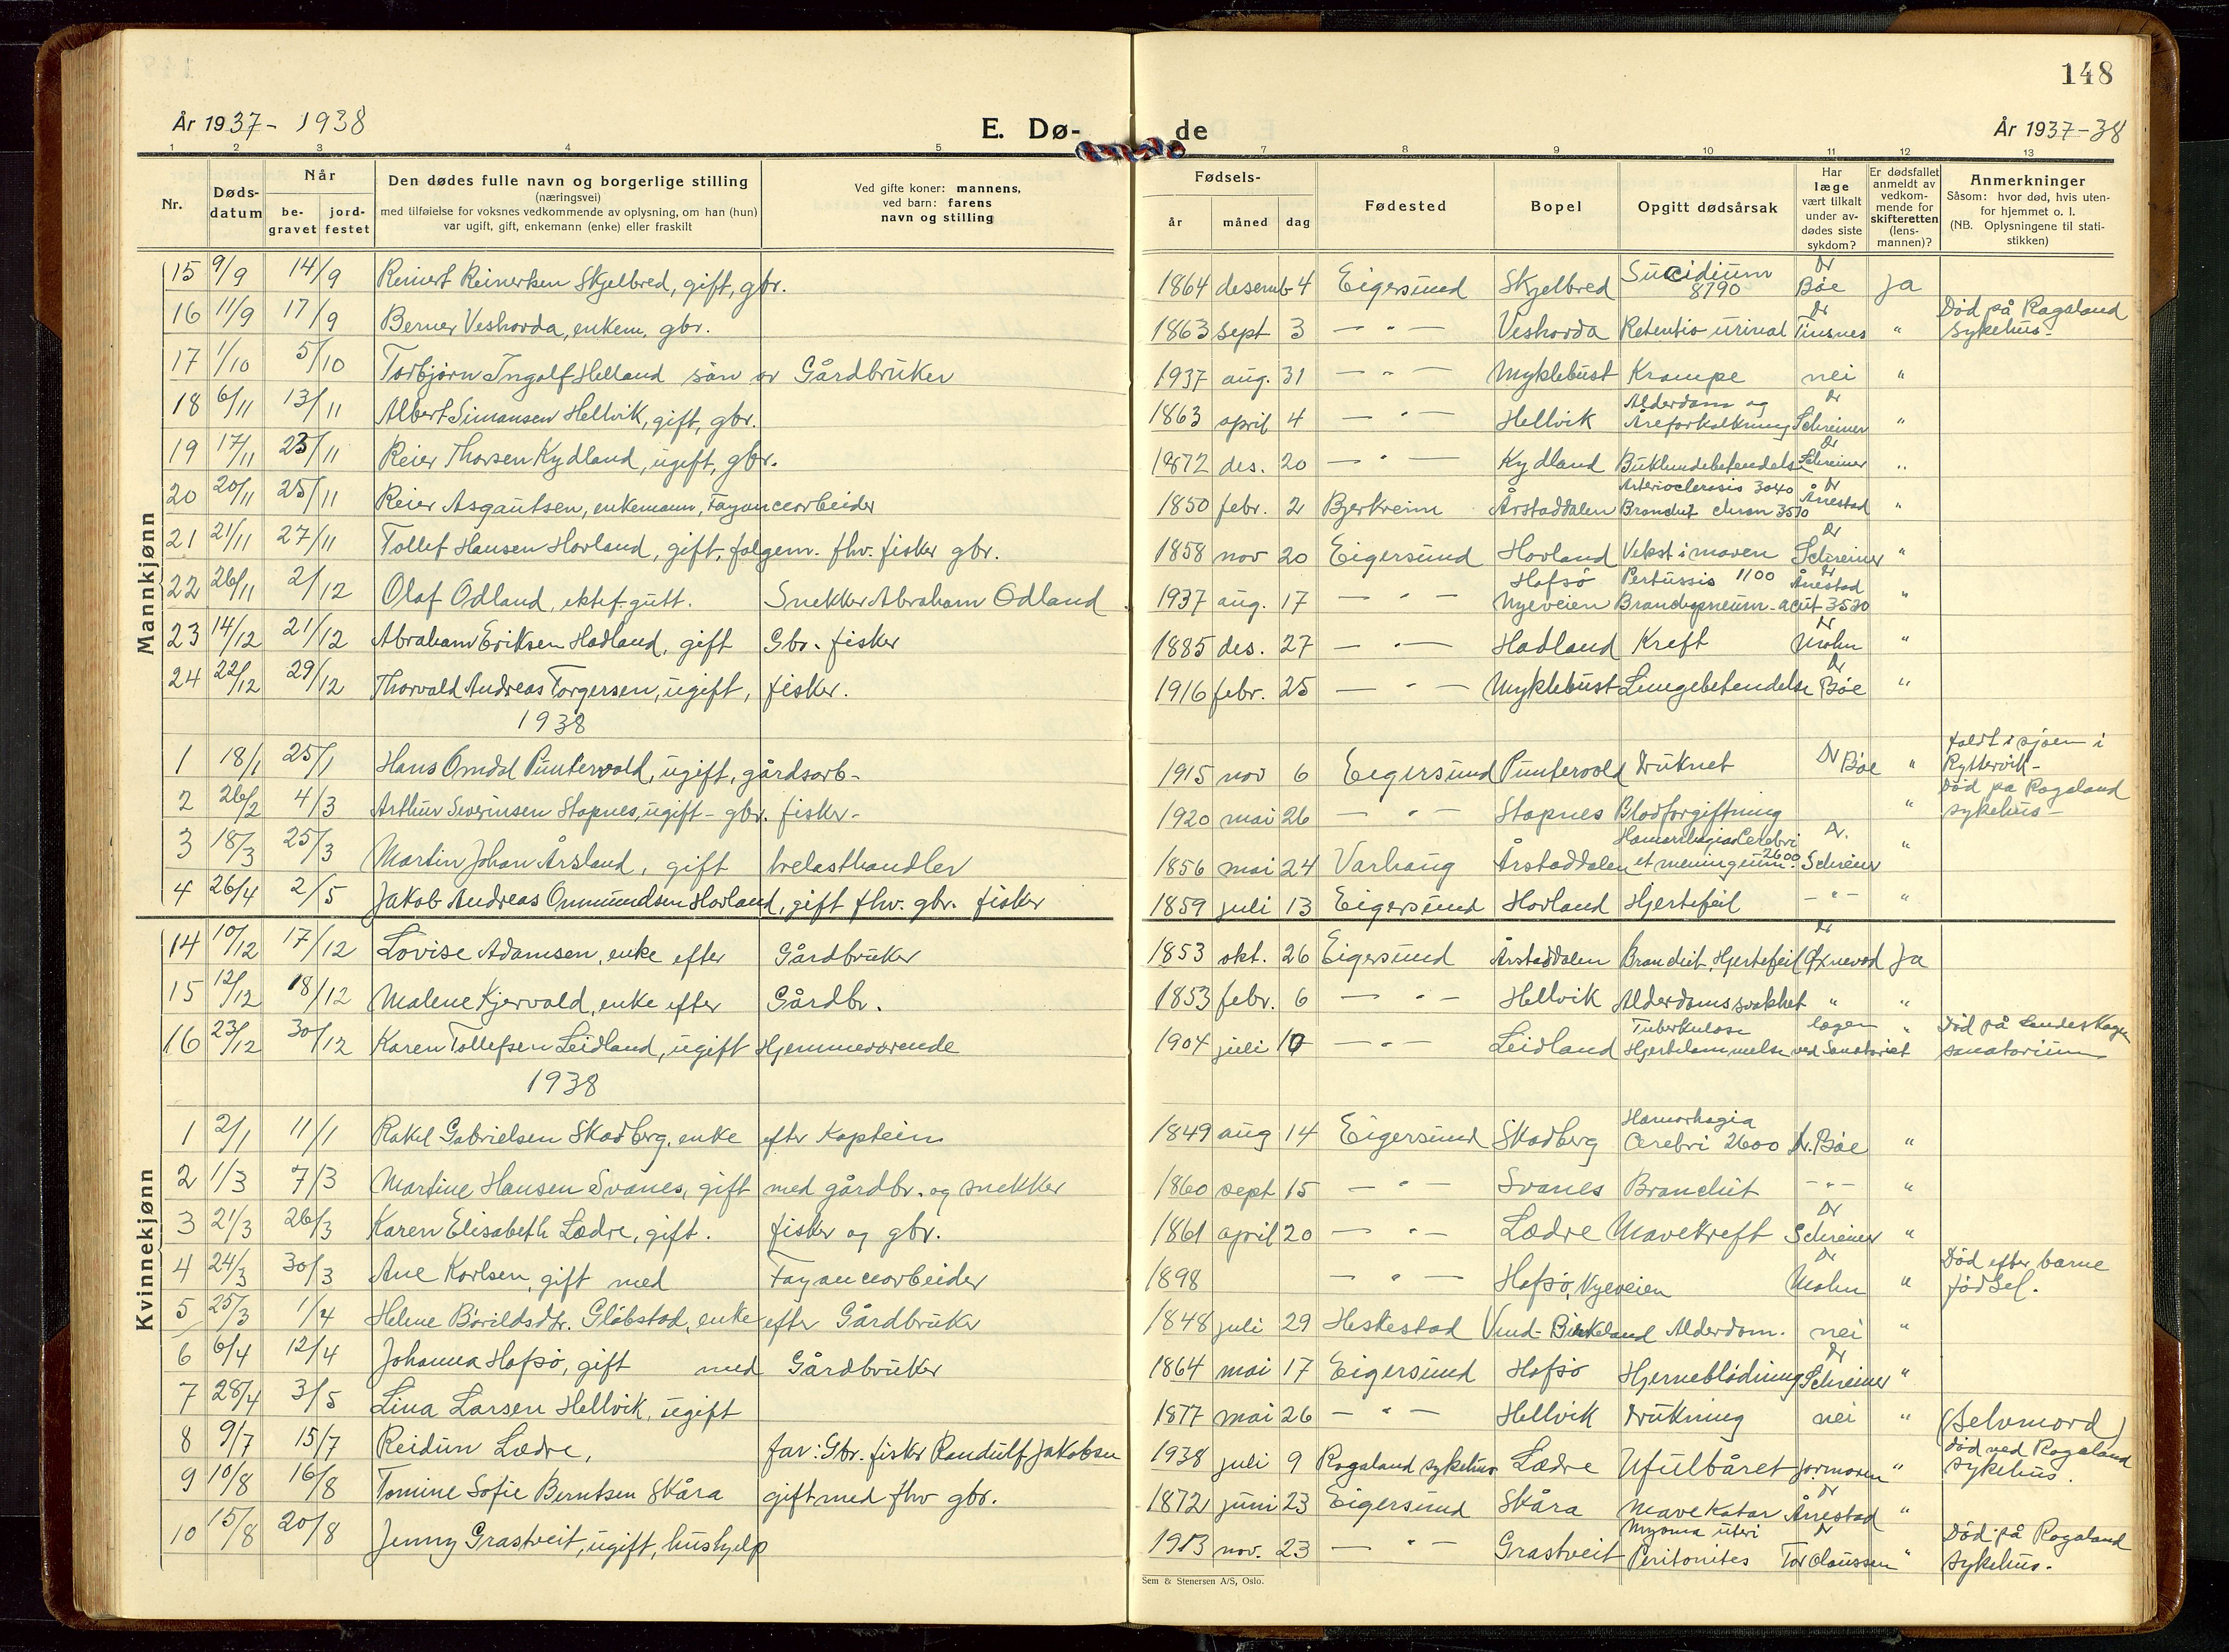 148
År 1937- 1938
E. Dø- de
År 1937-38
1 2 3 4 5 7 8 9 10 11 12 13
Nr.
Døds-
datum
Når
be-
gravet
jord-
festet
Den dødes fulle navn og borgerlige stilling
(næringsvei)
med tilføielse for voksnes vedkommende av oplysning, om han (hun)
var ugift, gift, enkemann (enke) eller fraskilt
Ved gifte koner: mannens,
ved barn: farens
navn og stilling
Fødsels-
år måned dag
Fødested
Bopel
Opgitt dødsårsak
Har
læge
vært tilkalt
under av-
dødes siste
sykdom?
Er dødsfallet
anmeldt av
vedkom-
mende for
skifteretten
(lens-
mannen)?
Anmerkninger
Såsom: hvor død, hvis uten-
for hjemmet o. l.
(NB. Oplysningene til stati-
stikken)
Mannkjønn
15 9/9 14/9 Reinert Reinertsen Skjelbred, gift, gbr. 1864 desemb 4 Eigersund Skjelbred Sucidium 8790 Dr Bøe Ja
16 11/9 17/9 Berner Veshovda, enkem, gbr. 1863 sept 3 — " — Veshovda Retentio urinal Dr Tinsnes " Død på Rogaland sykehus-
17 1/10 5/10 Torbjørn Ingolf Helland sön av Gårdbruker 1937 aug. 31 — " — Myklebust Krampe nei "
18 6/11 13/11 Albert Simonsen Hellvik, gift, gbr. 1863 april 4 — " — Hellvik Alderdom og Åreforkalkning Dr Schreiner "
19 17/11 23/11 Reier Thorsen Kydland, ugift, gbr. 1872 des. 20 — " — Kydland Dr Schreiner "
20 20/11 25/11 Reier Asgautsen, enkemann, Fayancearbeider 1850 febr. 2 Bjerkreim Årstaddalen Arterioclerosis 3040 Bronchit chron 3570 Dr Årrestad "
21 21/11 27/11 Tollef Hansen Hovland, gift, folgem. fhv. fisker gbr. 1858 nov 20 Eigersund Hovland Vekst i maven Dr Schreiner "
22 26/11 2/12 Olaf Odland, ektef. gutt. Snekker Abraham Odland 1937 aug. 17 — " — Hafsø Nyeveien Pertussis 1100 Bronchopneum. acut 3530 Dr Årrestad "
23 14/12 21/12 Abraham Eriksen Hadland, gift Gbr. fisker 1885 des. 27 — " — Hadland Kreft Dr Mohn "
24 22/12 29/12 Thorvald Andreas Torgersen, ugift, fisker. 1916 febr. 25 — " — Myklebust Lungebetendelse Dr Bøe "
1938
1 18/1 25/1 Hans Omdal Puntervold, ugift, gårdsarb- 1915 nov 6 Eigersund Puntervold Druknet Dr Bøe " faldt i sjøen i Ryttervik-
2 26/2 4/3 Arthur Severinsen Stapnes, ugift- gbr. fisker- 1920 mai 26 — " — Stapnes Blodforgiftning " Død på Rogaland sykehus-
3 18/3 25/3 Martin Johan Årsland, gift trelasthandler 1856 mai 24 Varhaug Årstaddalen Hamorrhagia Cerebri et meningeum. 2600 Dr. Schreiner "
4 26/4 2/5 Jakob Andreas Ommundsen Hovland, gift fhv. gbr. fisker 1859 juli 13 Eigersund Hovland Hjertefeil — " — "
Kvinnekjønn
14 10/12 17/12 Lovise Adamsen, enke efter Gårdbruker 1853 okt. 26 Eigersund Årstaddalen Bronchit. Hjertefeil Dr Øxnevad Ja
15 12/12 18/12 Malene Kjervald, enke efter Gårdbr. 1853 febr. 6 — " — Hellvik Alderdomssvakhet " "
16 23/12 30/12 Karen Tollefsen Leidland, ugift Hjemmeværende 1904 juli 10 — " — Leidland Tuberkulose Hjertelammelse lægen ved Sanatoriet " Død på Landeskogen sanatorium
1938
1 2/1 11/1 Rakel Gabrielsen Skadberg, enke efter Kaptein 1849 aug 14 Eigersund Skadberg Hamorhagia Cerebri 2600 Dr. Bøe "
2 1/3 7/3 Martine Hansen Svanes, gift med gårdbr. og snekker 1860 sept 15 — " — Svanes Bronchit — " — "
3 21/3 26/3 Karen Elisabeth Lædre, gift. fisker og gbr. 1861 april 20 — " — Lædre Mavekreft Dr Schreiner "
4 24/3 30/3 Ane Karlsen, gift med Fayancearbeider 1898 — " — Hafsø, Nyeveien Dr Mohn " Død efter barne fødsel.
5 25/3 1/4 Helene Bårildsdtr. Gløbstad, enke efter Gårdbruker 1848 juli 29 Heskestad Vind-Birkeland Alderdom. nei "
6 6/4 12/4 Johanna Hafsø, gift med Gårdbruker 1864 mai 17 Eigersund Hafsø Hjerneblødning Dr Schreiner "
7 28/4 3/5 Lina Larsen Hellvik, ugift 1877 mai 26 — " — Hellvik Drukning nei " (Selvmord)
8 9/7 15/7 Reidun Lædre, far: Gbr. fisker Randulf Jakobsen 1938 juli 9 Rogaland sykehus Lædre Ufulbåret jormoren " Død ved Rogaland sykehus.
9 10/8 16/8 Tomine Sofie Berntsen Skåra gift med fhv gbr. 1872 juni 23 Eigersund Skåra Mave Katar Dr Årrestad "
10 15/8 20/8 Jenny Grastveit, ugift, hushjelp 1913 nov. 23 — " — Grastveit Myoma uteri Peritonites Dr Tor Claussen " Død på Rogaland sykehus.
Sem & Stenersen A/S, Oslo.